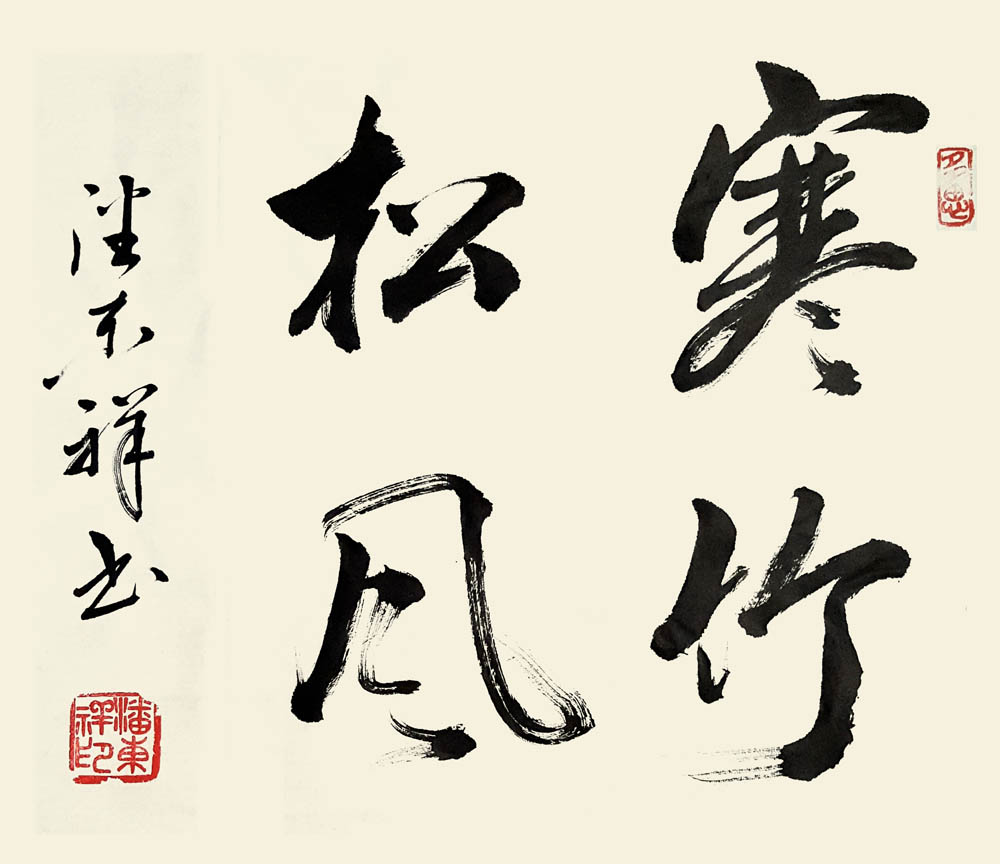 寒竹
松风
潘东祥书
潘東祥印